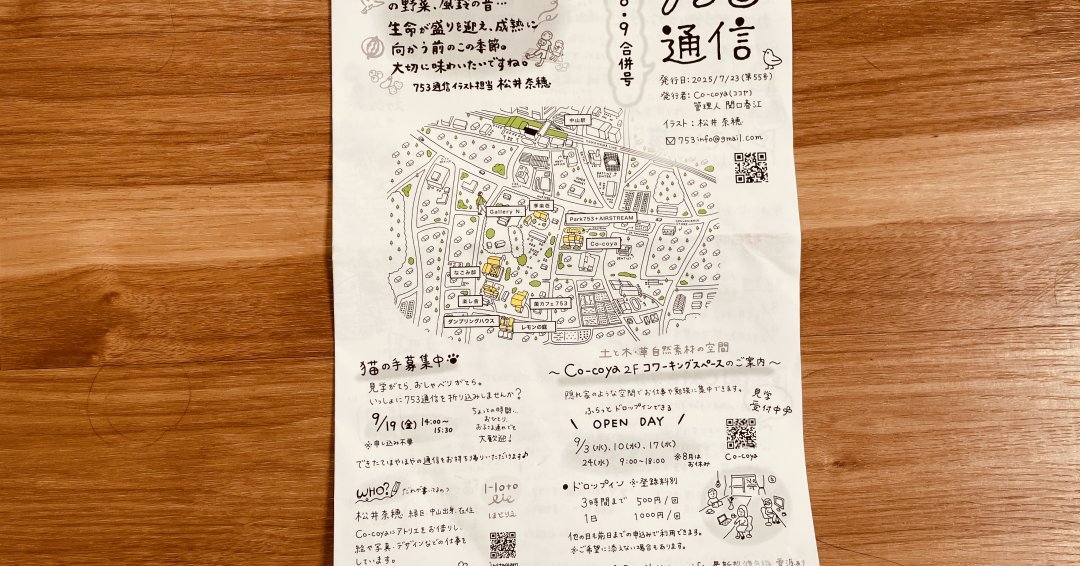 の野菜、風鈴の音…
生命が盛りを迎え、成熟に
向かう前のこの季節。
大切に味わいたいですね。
753通信イラスト担当 松井奈穂
8・9合併号
通信
発行日:2025/7/23(第55号)
発行者:Co-coya(ココヤ)
管理人 関口春江
イラスト:松井奈穂
753info@gmail.com
中山駅
Gallery N.
季楽荘
Park753+AIRSTREAM
Co-coya
なごみ邸
楽し舎
菌カフェ753
ダンプリングハウス
レモンの庭
猫の手募集中
見学がてら、おしゃべりがてら。
いっしょに753通信を折り込みしませんか?
9/19(金) 14:00~15:30
※申し込み不要
ちょっとの時間、
おひとり、
お子さま連れでも
大歓迎!
できたてほやほやの通信をお持ち帰りいただけます♪
WHO?
だれが書いてるの?
松井奈穂 緑区中山出身、在住。
Co-coyaにアトリエをお借りし、
絵や写真・デザインなどの仕事を
しています。
Hoto
rie
ほとりえ
instagram
土と木・草 自然素材の空間
~Co-coya 2F コワーキングスペースのご案内~
隠れ家のような空間でお仕事や勉強に集中できます。
ふらっと ドロップインできる
OPEN DAY
9/3(水)、10(水)、17(水)
24(水) 9:00~18:00 ※8月はお休み
見学
受付中
Co-coya
●ドロップイン ※登録料別
3時間まで 500円/回
1日 1000円/回
他の日も前日までの申込みで利用できます。
※ご希望に添えない場合もあります。